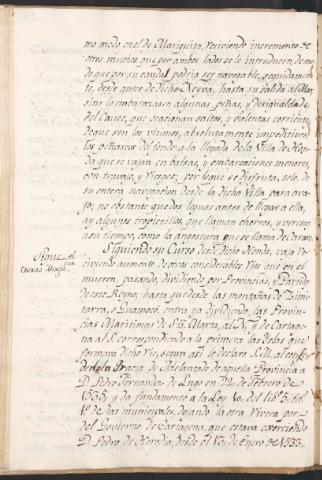 mo modo en el de Mariquita, reciviendo incremento de
otros muchos, que por ambos lados se le introducen de mo
do que por su caudal podria ser navegable, seguidamen
te, desde antes de dicho Neyva, hasta su salida al Mar,
sino le embarazasen algunas peñas, y desigualdades
del Cauce, que ocacionan saltos, y violentas corrientes,
de que son los ultimos, absolutamente impeditivos,
los peñascos del fondo a la llegada de la Villa de Hon
da que se vajan en balsas, y embarcaciones menores,
con travajo, y riesgos; por lo que se disfruta, solo de
su entera navegacion desde la dicha Villa para ava
jo; no obstante que dos leguas antes de llegar a ella,
ay algunos tropiezillos, que llaman chorros, y
en tiempo, como la angostura que se llama del Carare.
Siguiendo su Curso desde dicho Honda, vaja re
civiendo aumento de otros considerables Rios que en el
mueren, pasando, dividiendo por Provincias, y Partidos
de este Reyno, hasta que desde las montañas de
tarra, o Guamoco, entra ya dividiendo, las Provin
cias Maritimas de Sta. Marta, al N. y de Cartage
na al S. correspondiendo a la primera las Yslas que
forma dicho Rio, segun asi lo declaro S.M. al
la Gracia de Adelantado de aquella Provincia a
D. Pedro Fernandez de Lugo en 22 de Febrero de
1535, y da fundamento a la Ley
1.º de las municipales, dejando la otra Rivera por
del Govierno de Cartagena, que estava exerciendo
D. Pedro de Heredia, desde el 13, de Enero de 1533.
Sigue el